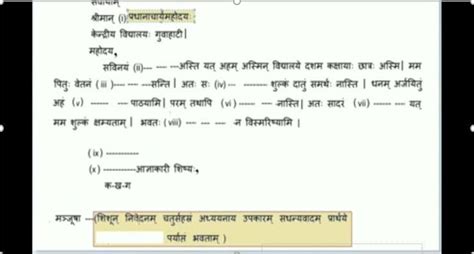 सेवायाम्
श्रीमान् (i) प्रधानाचार्यमहोदयः
केन्द्रीय विद्यालयः गुवाहाटी|
महोदय,
सविनयं (ii)--- ---अस्ति यत् अहम् अस्मिन् विद्यालये दशम कक्षायाः छात्रः अस्मि| मम
पितुः वेतनं (iii )---- --- ---सन्ति| अतः सः (iv)-- --------- शुल्कं दातुं समर्थः नास्ति | धनम् अर्जयितुं
अहं (v) ------ ---- पाठयामि | परम् तथापि (vi ) ----- ----नास्ति| अतः सादरं (vii) ------- --- यत्
मम शुल्कं क्षम्यताम् | भवतः (viii) ---- --- -न विस्मरिष्यामि |
(ix) -----------
(x) -----------आज्ञाकारी शिष्यः,
क-ख-ग
मञ्जूषा ---(शिशून् निवेदनम् चतुर्सहस्रं अध्ययनाय उपकारम् सधन्यवादम् प्रार्थये
पर्याप्तं भवताम् )